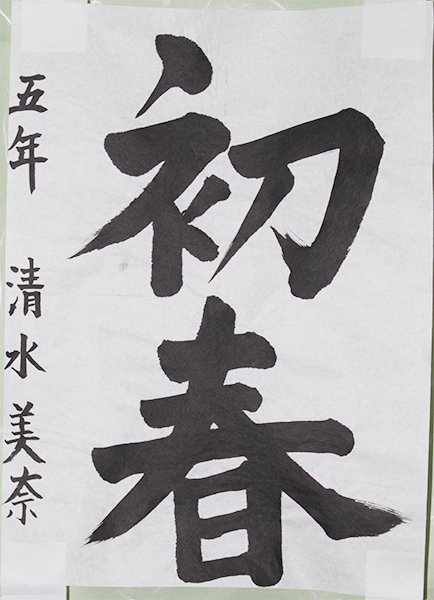 初春
五年 清水美奈